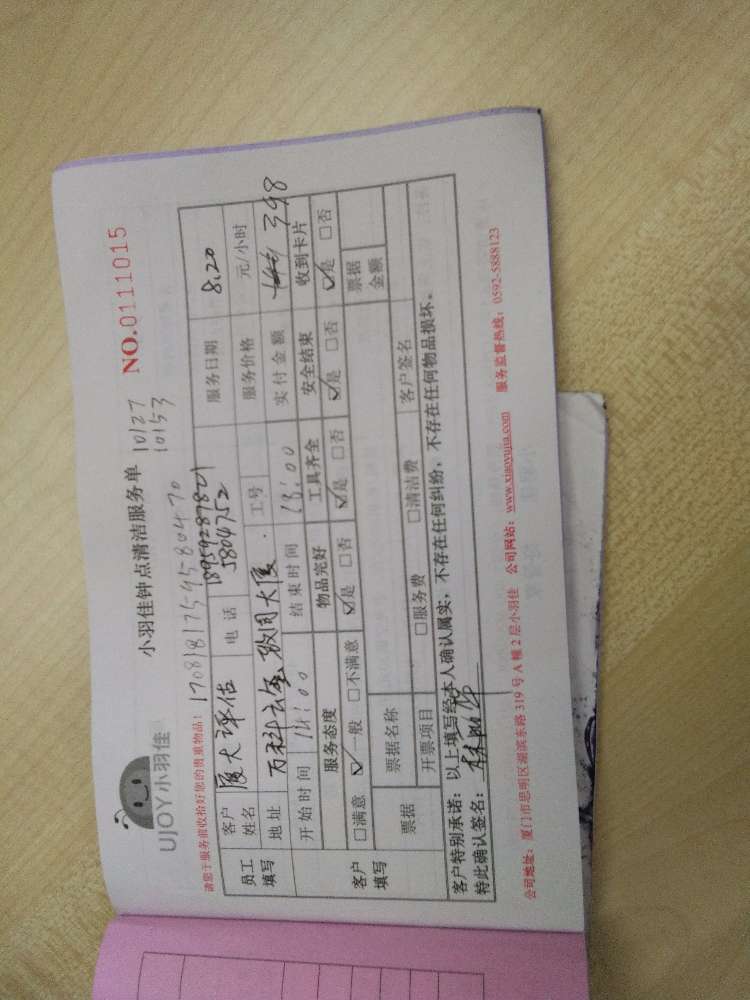 UJOY小羽佳
小羽佳钟点清洁服务单
10127
10153
NO.0111015
请您于服务前收拾好您的贵重物品!
1708181754580470
员工填写
客户姓名 厦大评估 电话 18959287821 5804752 服务日期 8.20
地址 万科云玺 致同大厦 工号 服务价格 元/小时
开始时间 14:00 结束时间 18:00 实付金额 398
客户填写
服务态度 物品完好 工具齐全 安全结束 收到卡片
□满意 ☑一般 □不满意 ☑是 □否 ☑是 □否 ☑是 □否 ☑是 □否
票据 票据名称 票据金额
开票项目 □服务费 □清洁费 客户签名
客户特别承诺:以上填写经本人确认属实,不存在任何纠纷,不存在任何物品损坏。
特此确认签名:
公司地址:厦门市思明区湖滨东路319号A幢2层小羽佳 公司网站:www.xiaoyujia.com 服务监督热线:0592-5888123